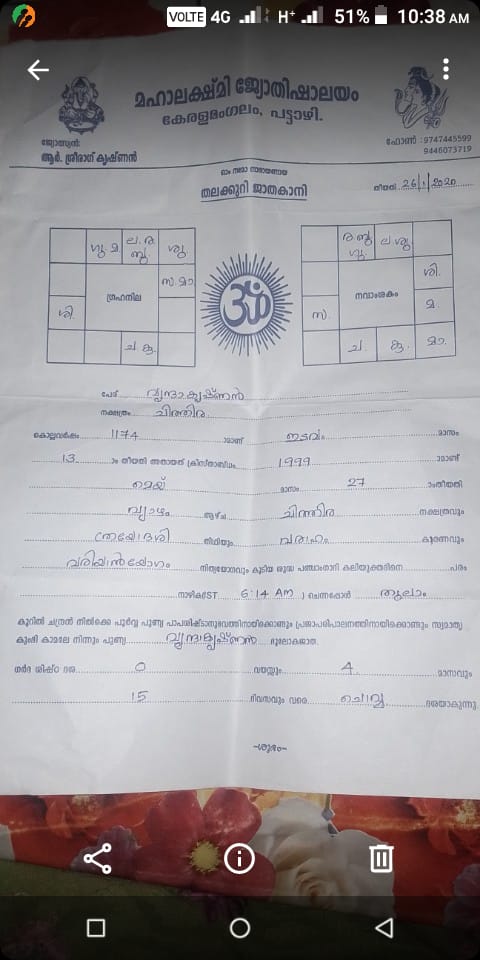 VOLTE 4G H+ 51% 10:38 AM
മഹാലക്ഷ്മി ജ്യോതിഷാലയം
കേരളമംഗലം, പട്ടാഴി.
ജ്യോത്സ്യൻ:
ആർ. ശ്രീരാഗ് കൃഷ്ണൻ
ഫോൺ : 9747445599
9446073719
ഓം നമോ നാരായണായ
തലക്കുറി ജാതകാനി
തീയതി 26/1/2020
ഗു. മ ല.ര. ബു. ശു
സ.മാ
ഗ്രഹനില
ശി.
ച കു.
ര.ബു ഗു. ല.ശു
ശി.
നവാംശകം
സ. മ.
ച. കു. മാ.
ॐ
പേര് വൃന്ദാകൃഷ്ണൻ
നക്ഷത്രം ചിത്തിര
കൊല്ലവർഷം 1174 ാമാണ്ട് ഇടവം മാസം
13 ാം തീയതി അതായത് ക്രിസ്താബ്ദം 1999 ാമാണ്ട്
മെയ് മാസം 27 ാംതീയതി
വ്യാഴം ആഴ്ച ചിത്തിര നക്ഷത്രവും
ത്രയോദശി തിഥിയും വരാഹം കരണവും
വരിയാൻയോഗം നിത്യയോഗവും കൂടിയ ശുദ്ധ പഞ്ചാംഗാനി കലിയുക്തദിനെ പരം
നാഴിക(IST 6:14 AM ) ചെന്നപ്പോൾ തുലാം
കൂറിൽ ചന്ദ്രൻ നിൽക്കെ പൂർവ്വ പുണ്യ പാപശിഷ്ടാനുഭവത്തിനായിക്കൊണ്ടും പ്രജാപരിപാലനത്തിനായിക്കൊണ്ടും സ്വമാതൃ
കുംഭി കാമലേ നിന്നും പുണ്യ വൃന്ദാകൃഷ്ണൻ ഭൂലോകജാത.
ഗർഭ ശിഷ്ഠ ദശ 0 വയസ്സും 4 മാസവും
15 ദിവസവും വരെ ചൊവ്വ ദശയാകുന്നു.
-ശുഭം-